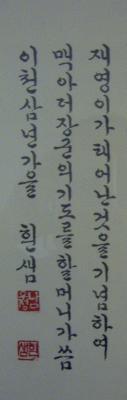 재영이가 태어난 것을 기념하여
맥아더 장군의 기도를 할머니가 씀
이천삼년 가을 한샘